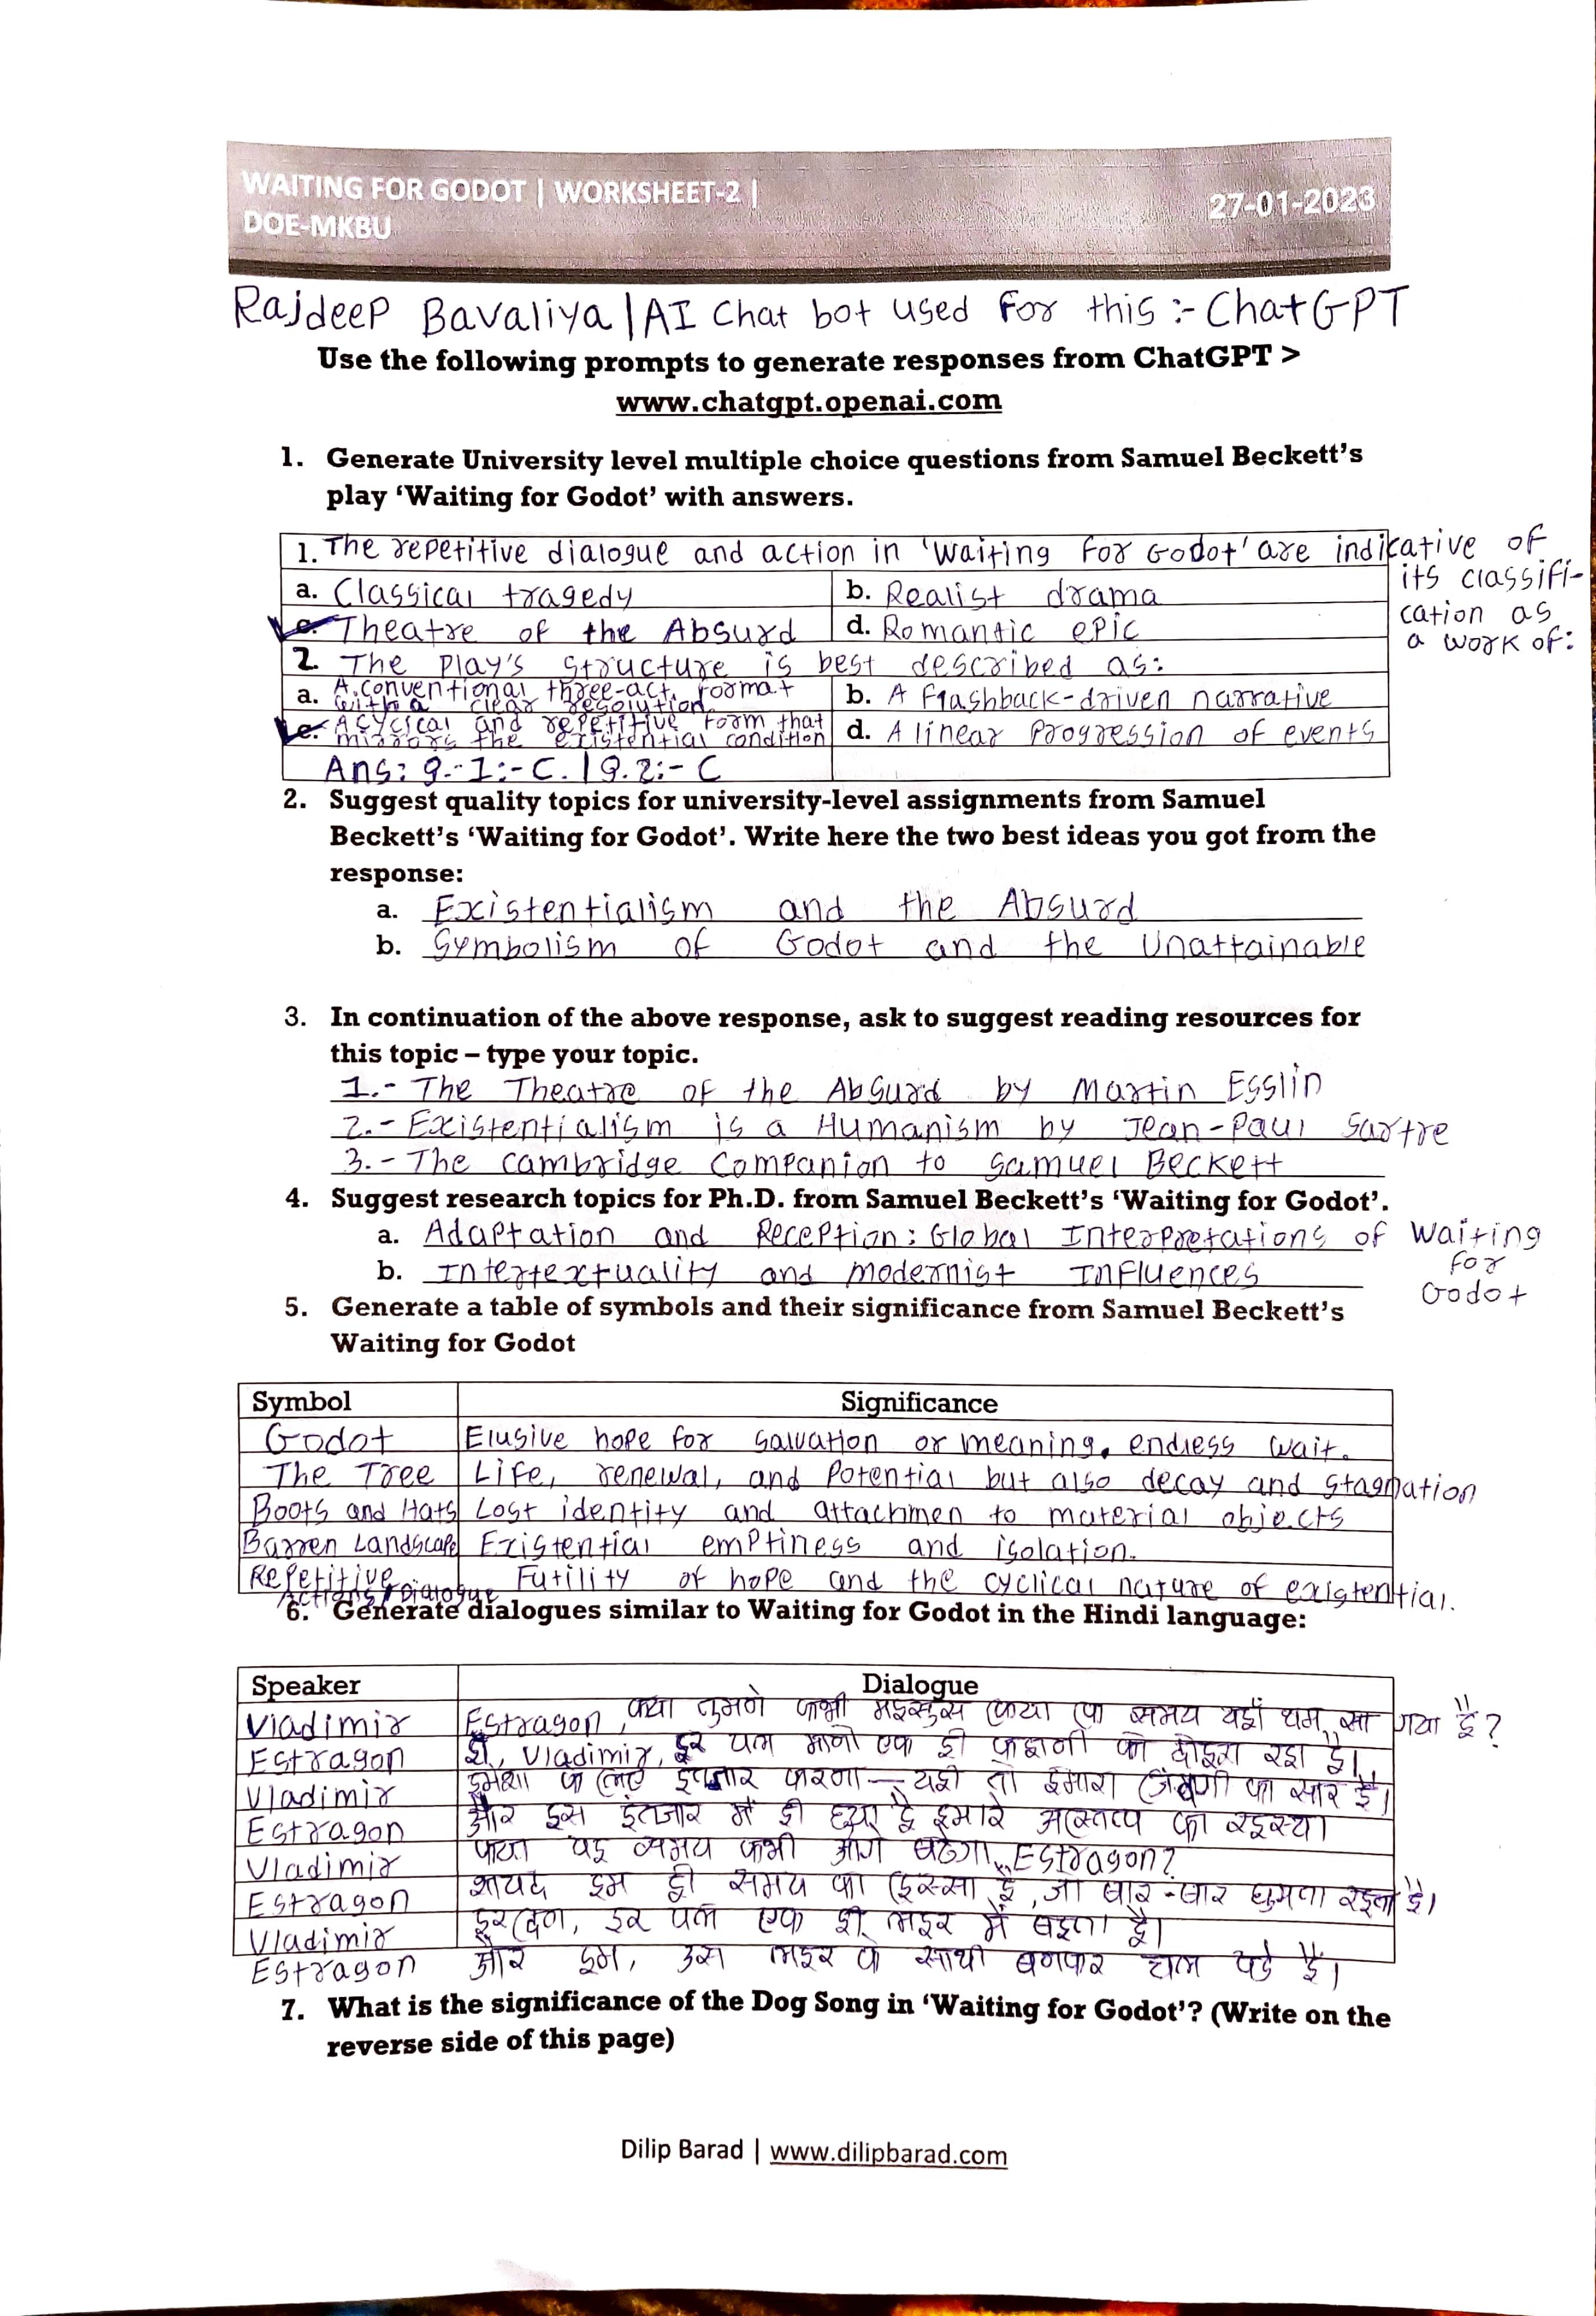 WAITING FOR GODOT | WORKSHEET-2 |
DOE-MKBU
27-01-2023
Rajdeep Bavaliya | AI Chat bot used for this :- ChatGPT
Use the following prompts to generate responses from ChatGPT >
www.chatgpt.openai.com
1. Generate University level multiple choice questions from Samuel Beckett's
play ‘Waiting for Godot’ with answers.
1. The repetitive dialogue and action in 'Waiting for Godot' are indicative of
its classifi-
cation as
a work of:
a. Classical tragedy
b. Realist drama
c. Theatre of the Absurd
d. Romantic epic
2. The play's structure is best described as:
a. A conventional three-act format
with a clear resolution.
b. A flashback-driven narrative
c. A cyclcal and repetitive form that
mirrors the existential condition
d. A linear progression of events
Ans: Q.-1:- C. | Q.2:- C
2. Suggest quality topics for university-level assignments from Samuel
Beckett's ‘Waiting for Godot’. Write here the two best ideas you got from the
response:
a. Existentialism and the Absurd
b. Symbolism of Godot and the Unattainable
3. In continuation of the above response, ask to suggest reading resources for
this topic – type your topic.
1.- The Theatre of the Absurd by Martin Esslin
2.- Existentialism is a Humanism by Jean-Paul Sartre
3.- The Cambridge Companion to Samuel Beckett
4. Suggest research topics for Ph.D. from Samuel Beckett's ‘Waiting for Godot’.
a. Adaptation and Reception: Global Interpretations of Waiting
for
Godot
b. Intertextuality and Modernist Influences
5. Generate a table of symbols and their significance from Samuel Beckett's
Waiting for Godot
Symbol Significance
Godot Elusive hope for salvation or meaning, endless wait.
The Tree Life, renewal, and Potential but also decay and stagnation
Boots and Hats Lost identity and attachmen to material objects
Barren Landscape Existential emptiness and isolation.
Repetitive Futility of hope and the cyclical nature of existential.
Actions/Dialogue
6. Generate dialogues similar to Waiting for Godot in the Hindi language:
Speaker Dialogue
Vladimir Estragon, क्या तुमने कभी महसूस किया कि समय यहाँ थम सा गया है?
Estragon हाँ, Vladimir, हर पल मानो एक ही कहानी को दोहरा रहा है।
Vladimir हमेशा के लिए इंतजार करना — यही तो हमारी जिंदगी का सार है।
Estragon और इस इंतजार में ही छुपा है हमारे अस्तित्व का रहस्य।
Vladimir क्या यह समय कभी आगे बढेगा, Estragon?
Estragon शायद हम ही समय का हिस्सा हैं, जो बार-बार घुमता रहता है।
Vladimir हर दिन, हर पल एक ही लहर में बहता है।
Estragon और हम, उस लहर के साथी बनकर चल पडे हैं।
7. What is the significance of the Dog Song in ‘Waiting for Godot’? (Write on the
reverse side of this page)
Dilip Barad | www.dilipbarad.com